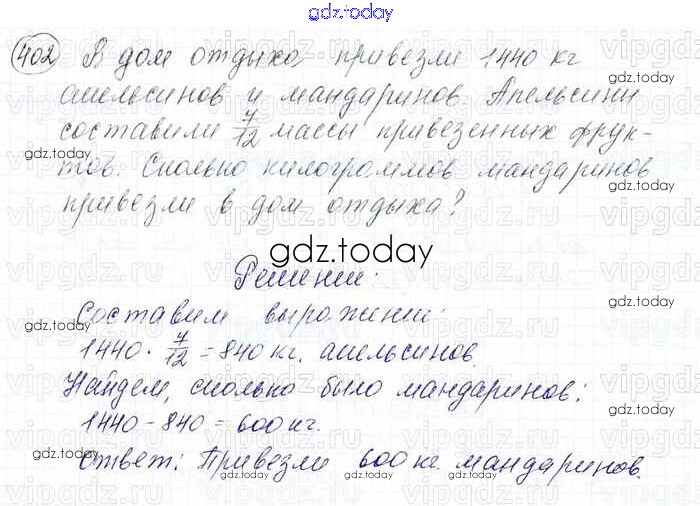 gdz.today
402 В дом отдыха привезли 1440 кг
апельсинов и мандаринов. Апельсины
составили 7/12 массы привезенных фрук-
тов. Сколько килограммов мандаринов
привезли в дом отдыха?
gdz.today
Решение:
Составим выражение:
1440 · 7/12 = 840 кг. апельсинов.
Найдем, сколько было мандаринов:
1440 - 840 = 600 кг.
Ответ: Привезли 600 кг. мандаринов.